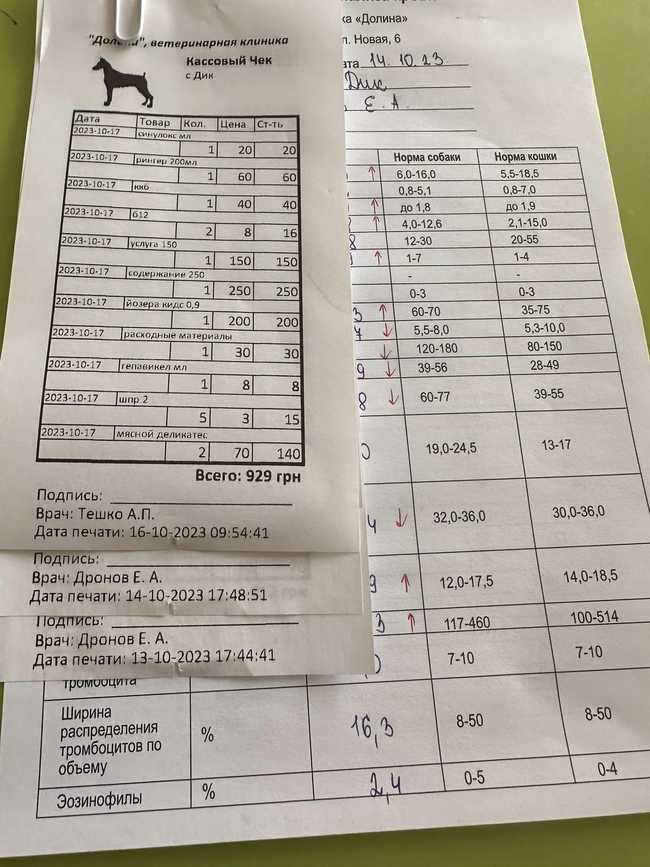 "Долина", ветеринарная клиника
Кассовый Чек
с Дик
Дата Товар Кол. Цена Ст-ть
2023-10-17 синулокс мл
1 20 20
2023-10-17 рингер 200мл
1 60 60
2023-10-17 ккб
1 40 40
2023-10-17 б12
2 8 16
2023-10-17 услуга 150
1 150 150
2023-10-17 содержание 250
1 250 250
2023-10-17 йозера кидс 0,9
1 200 200
2023-10-17 расходные материалы
1 30 30
2023-10-17 гепавикел мл
1 8 8
2023-10-17 шпр 2
5 3 15
2023-10-17 мясной деликатес
2 70 140
Всего: 929 грн
Подпись:
Врач: Тешко А.П.
Дата печати: 16-10-2023 09:54:41
Подпись:
Врач: Дронов Е. А.
Дата печати: 14-10-2023 17:48:51
Подпись:
Врач: Дронов Е. А.
Дата печати: 13-10-2023 17:44:41
«Долина»
Новая, 6
14.10.23
Дик
Е. А.
Норма собаки Норма кошки
↑ 6,0-16,0 5,5-18,5
0,8-5,1 0,8-7,0
↑ до 1,8 до 1,9
↑ 4,0-12,6 2,1-15,0
8 12-30 20-55
↑ 1-7 1-4
- -
0-3 0-3
3 ↑ 60-70 35-75
7 ↓ 5,5-8,0 5,3-10,0
↓ 120-180 80-150
9 ↓ 39-56 28-49
8 ↓ 60-77 39-55
0 19,0-24,5 13-17
4 ↓ 32,0-36,0 30,0-36,0
9 ↑ 12,0-17,5 14,0-18,5
3 ↑ 117-460 100-514
тромбоцита 0 7-10 7-10
Ширина
распределения
тромбоцитов по
объему
% 16,3 8-50 8-50
Эозинофилы % 2,4 0-5 0-4